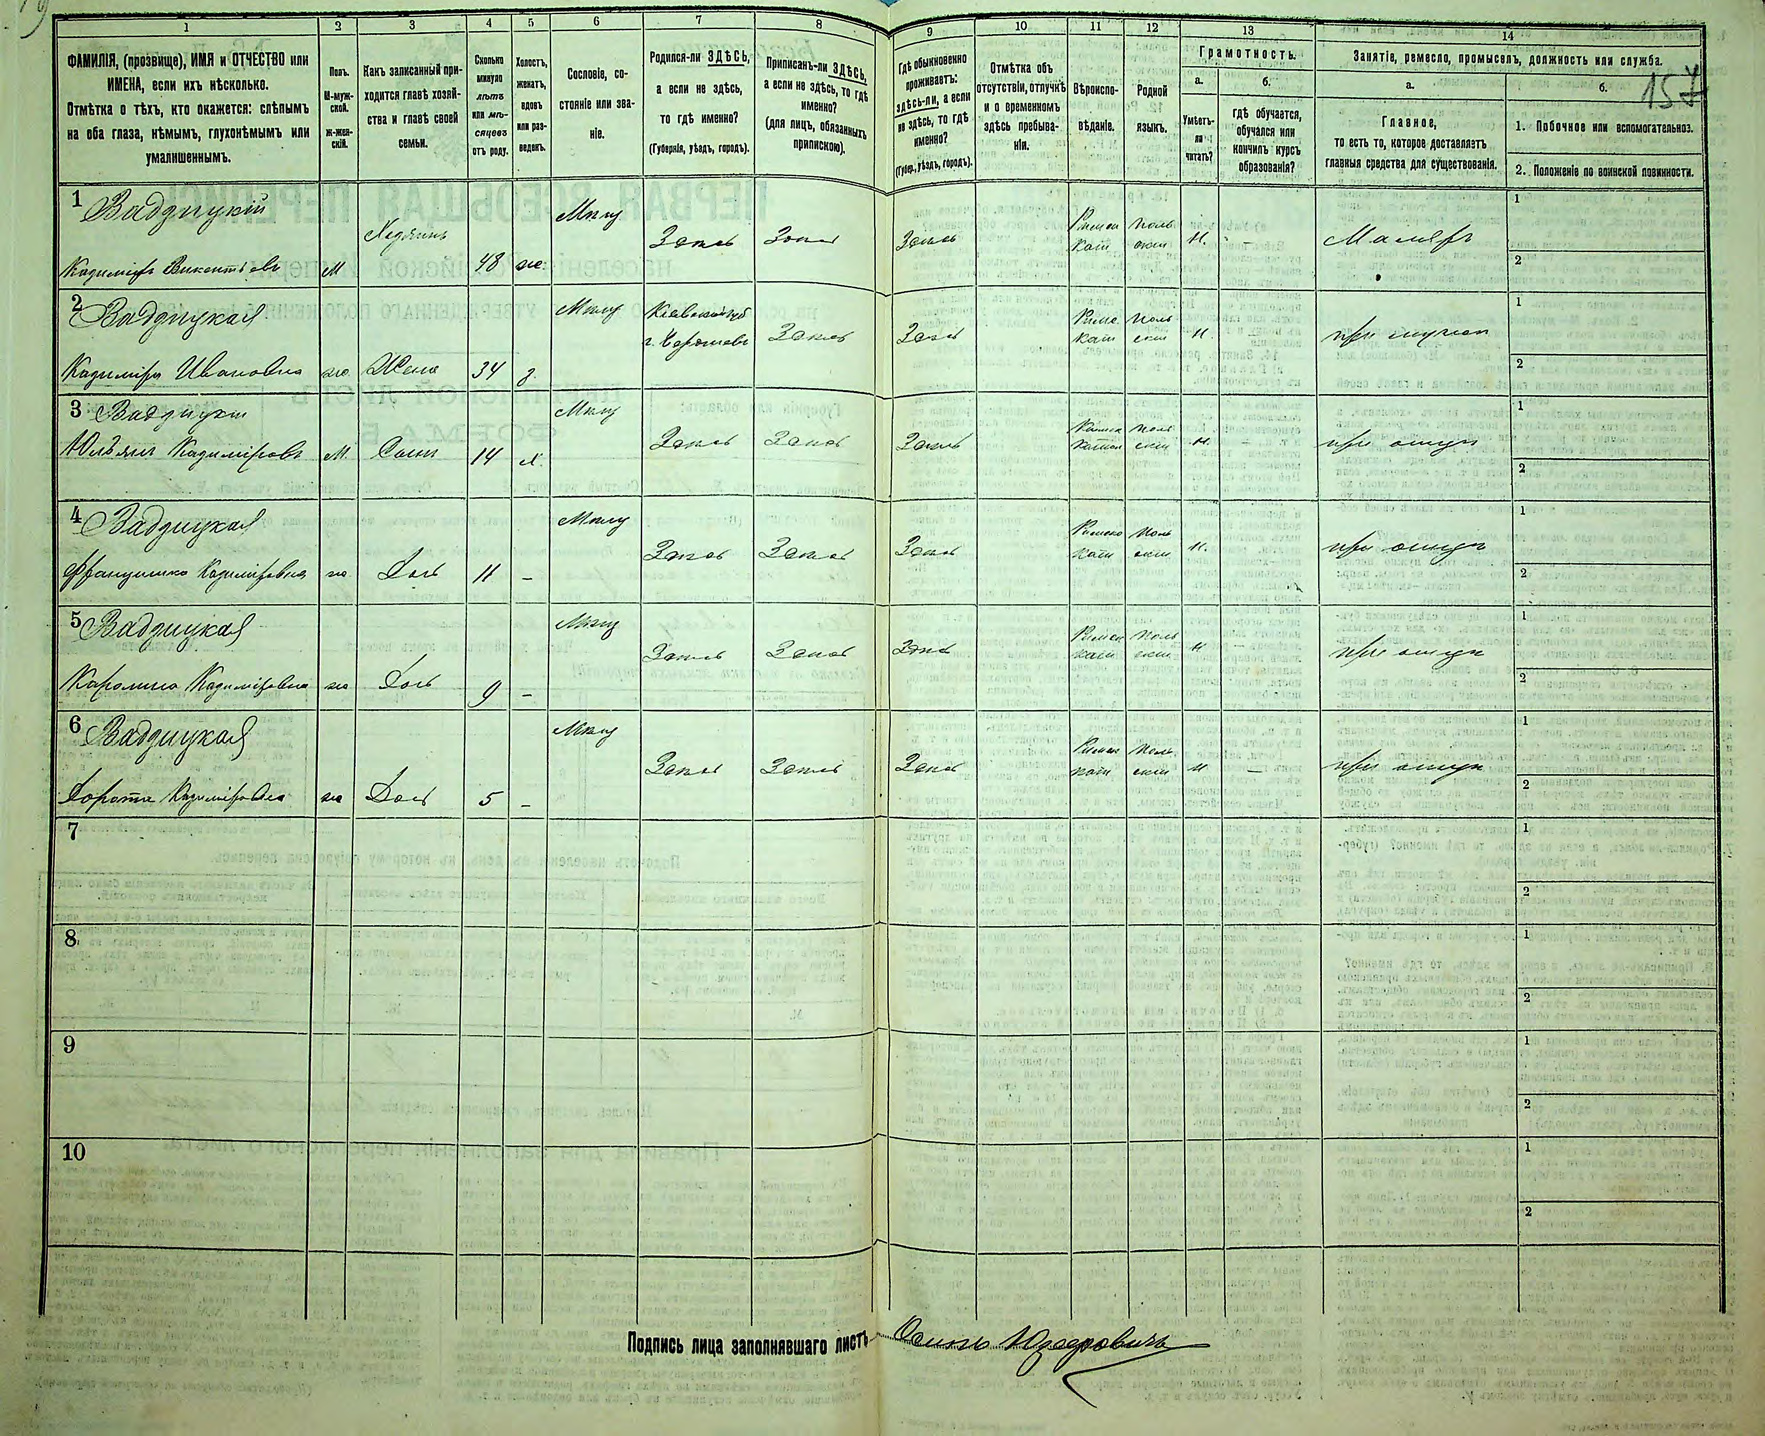 157
1 2 3 4 5 6 7 8 9 10 11 12 13 14
ФАМИЛІЯ, (прозвище), ИМЯ и ОТЧЕСТВО или
ИМЕНА, если ихъ нѣсколько.
Отмѣтка о тѣхъ, кто окажется: слѣпымъ
на оба глаза, нѣмымъ, глухонѣмымъ или
умалишеннымъ.
Полъ.
М-муж-
ской.
ж-жен-
скій.
Какъ записанный при-
ходится главѣ хозяй-
ства и главѣ своей
семьи.
Сколько
минуло
лѣтъ
или мѣ-
сяцевъ
отъ роду.
Холостъ,
женатъ,
вдовъ
или раз-
веденъ.
Сословіе, со-
стояніе или зва-
ніе.
Родился-ли ЗДѢСЬ,
а если не здѣсь,
то гдѣ именно?
(Губернія, уѣздъ, городъ).
Приписанъ-ли ЗДѢСЬ,
а если не здѣсь, то гдѣ
именно?
(для лицъ, обязанныхъ
припискою).
Гдѣ обыкновенно
проживаетъ:
здѣсь-ли, а если
не здѣсь, то гдѣ
именно?
(Губер., уѣздъ, городъ).
Отмѣтка объ
отсутствіи, отлучкѣ
и о временномъ
здѣсь пребыва-
ніи.
Вѣроиспо-
вѣданіе.
Родной
языкъ.
Грамотность.
а.
Умѣетъ-
ли
читать?
б.
гдѣ обучается,
обучался или
кончилъ курсъ
образованія?
Занятіе, ремесло, промыселъ, должность или служба.
а.
Главное,
то есть то, которое доставляетъ
главныя средства для существованія.
б.
1. Побочное или вспомогательное.
2. Положеніе по воинской повинности.
1 Вадзицкій
Казиміръ Викентьевъ М Хозяинъ 48 ж. Мѣщ Здѣсь Здѣсь Здѣсь Римск кат поль ский н. – Маляръ
1
2
2 Вадзицкая
Казиміра Ивановна ж Жена 34 з. Мѣщ Здѣсь Здѣсь кат ский н.
1
2
3 Вадзицкій
Казиміровъ М. Сынъ 14 х. Мѣщ Здѣсь Здѣсь Здѣсь н. –
1
2
4 Вадзицкая
Казиміровна ж Дочь 11 – Мѣщ Здѣсь Здѣсь Здѣсь Римско кат поль ский н. – при отцѣ
1
2
5 Вадзицкая
Каролина Казиміровна ж Дочь 9 – Мѣщ Здѣсь Здѣсь Здѣсь Римск кат поль ский н – при отцѣ
1
2
6 Вадзицкая
Дорота Казиміровна ж Дочь 5 – Мѣщ Здѣсь Здѣсь Здѣсь Римск кат поль ский н – при отцѣ
1
2
7
1
2
8
1
2
9
1
2
10
1
2
Подпись лица заполнявшаго листъ Осипъ